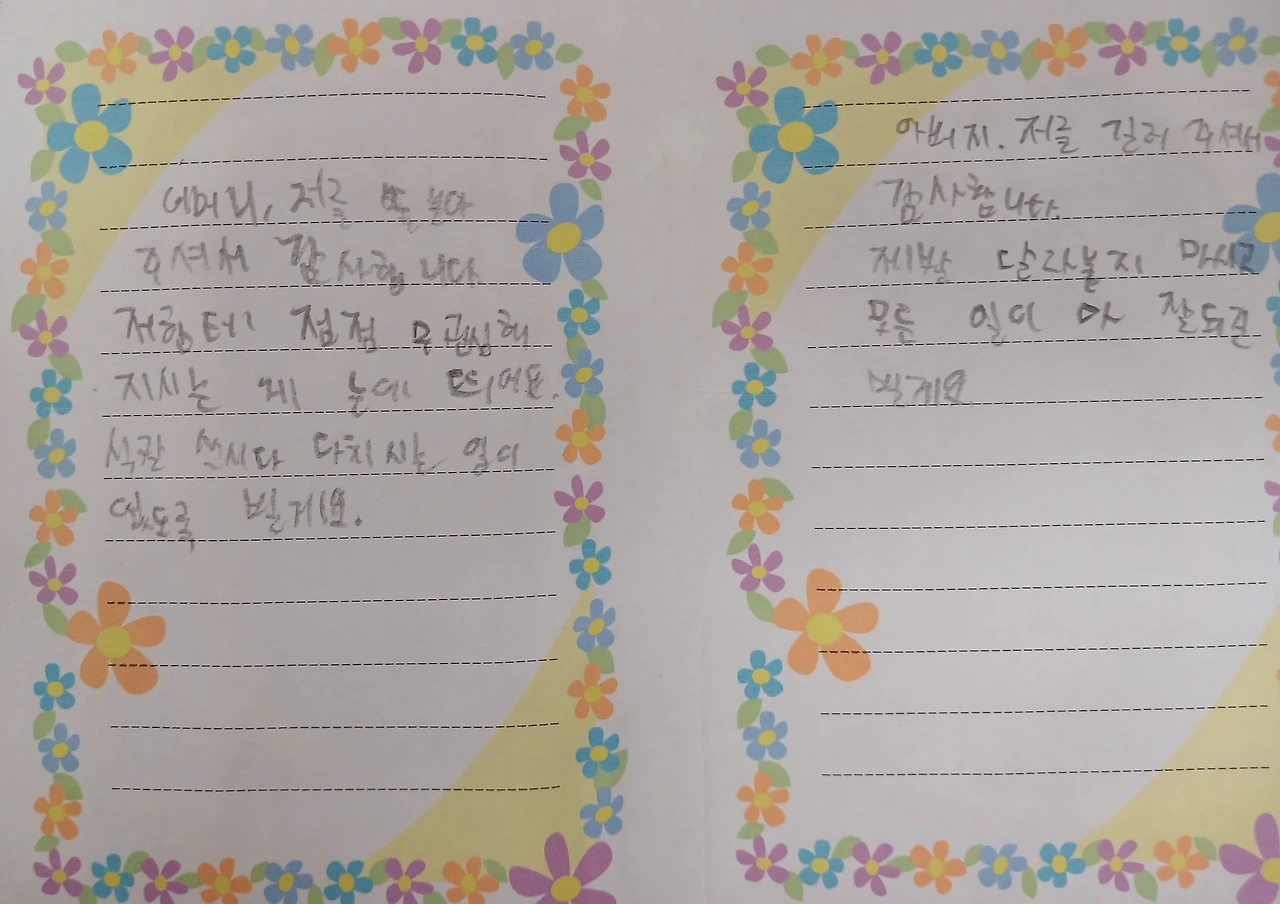 어머니, 저를 돌봐
주셔서 감사합니다
저한테 점점 무관심해
지시는 게 눈에 띄어요.
식칼 쓰시다 다치시는 일이
없도록 빌게요.
아버지. 저를 길러 주셔서
감사합니다.
제발 달라붙지 마시고
모든 일이 다 잘되길
빌게요